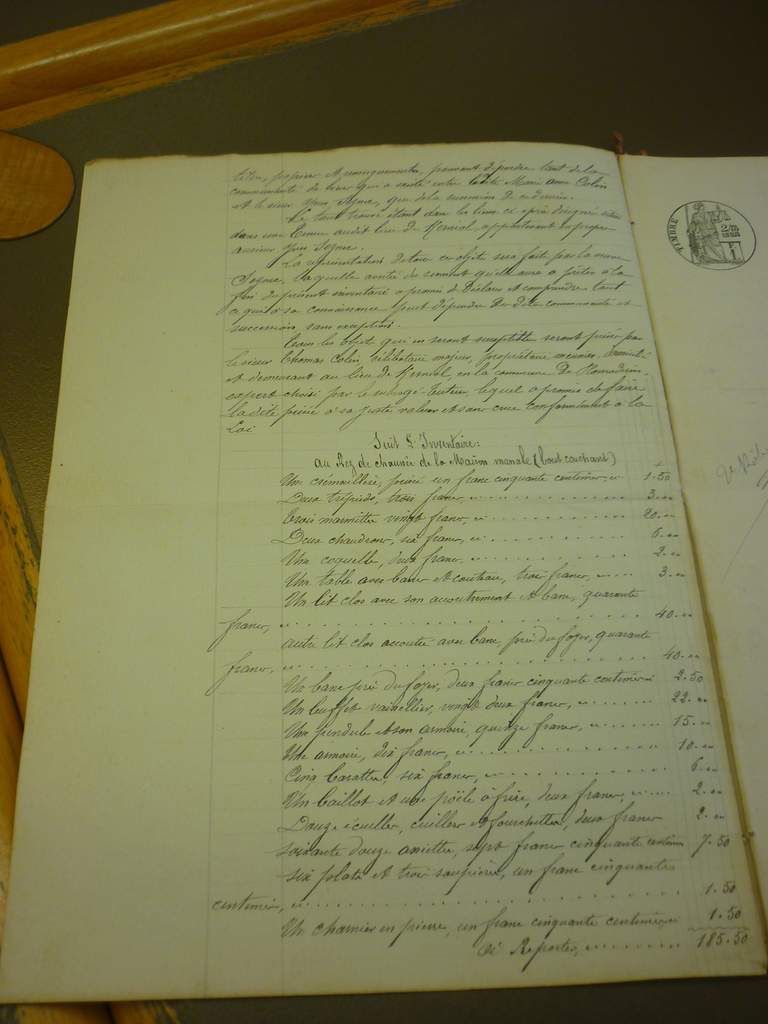 titres, papiers et renseignements pouvant dépendre tant de la
communauté de biens qui a existé entre la dite Marie Anne Colin
et le sieur Yves Seznec, que de la succession de ce dernier.
Le tout trouvé étant dans les lieux ci après désignés situés
dans une tenue audit lieu de appartenant en propre
au sieur Yves Seznec.
La représentation de tous ces objets sera fait par la veuve
Seznec, laquelle avertie du serment qu'elle aura à prêter à la
fin du présent inventaire a promis de déclarer et comprendre tout
ce qui à sa connaissance peut dépendre des dites communauté et
succession, sans exception.
Tous les objets qui en seront susceptibles seront prisés par
le sieur Thomas Colin célibataire majeur, propriétaire meunier, domicilié
et demeurant au lieu de en la commune De
expert choisi par le subrogé-tuteur lequel a promis de faire
la dite prisée à sa juste valeur et sans crue conformément à la
Loi
Suit L'Inventaire:
au Rez de chaussée de la Maison manale (bout couchant)
Une crémaillère, prisée un franc cinquante centimes, ci 1.50
Deux trépieds, trois francs, ci 3. "
Trois marmites vingt francs, ci 20. "
Deux chaudrons, six francs, ci 6. "
Une coquelle, deux francs, 2. "
Une table avec bancs et couteau, trois francs, 3. "
Un lit clos avec son accoutrement et banc, quarante
francs, ci 40. "
autre lit clos accoutré avec banc, près du foyer, quarante
francs, ci 40. "
Un banc près du foyer, deux francs cinquante centimes ci 2.50
Un buffet vaissellier, vingt deux francs, ci 22. "
Une pendule et son armoire, quinze francs, ci 15. "
Une armoire, dix francs, ci 10. "
Cinq barattes, six francs, ci 6. "
Un baillot et une poële à frire, deux francs, ci 2. "
Douze écuelles, cuillers et fourchettes, deux francs 2. "
soixante douze assiettes, sept francs cinquante centimes 7.50
six plats et trois saupières, un franc cinquante
centimes, ci 1.50
Un charnier en pierre, un franc cinquante centimes ci 1.50
à Reporter, 185.50
TIMBRE